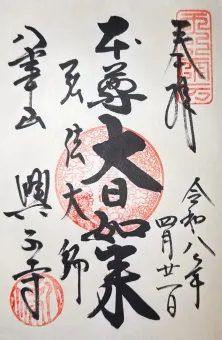 奉拝
令和八年
四月廿一日
本尊 大日如来
弘法大師
八事山 興正寺